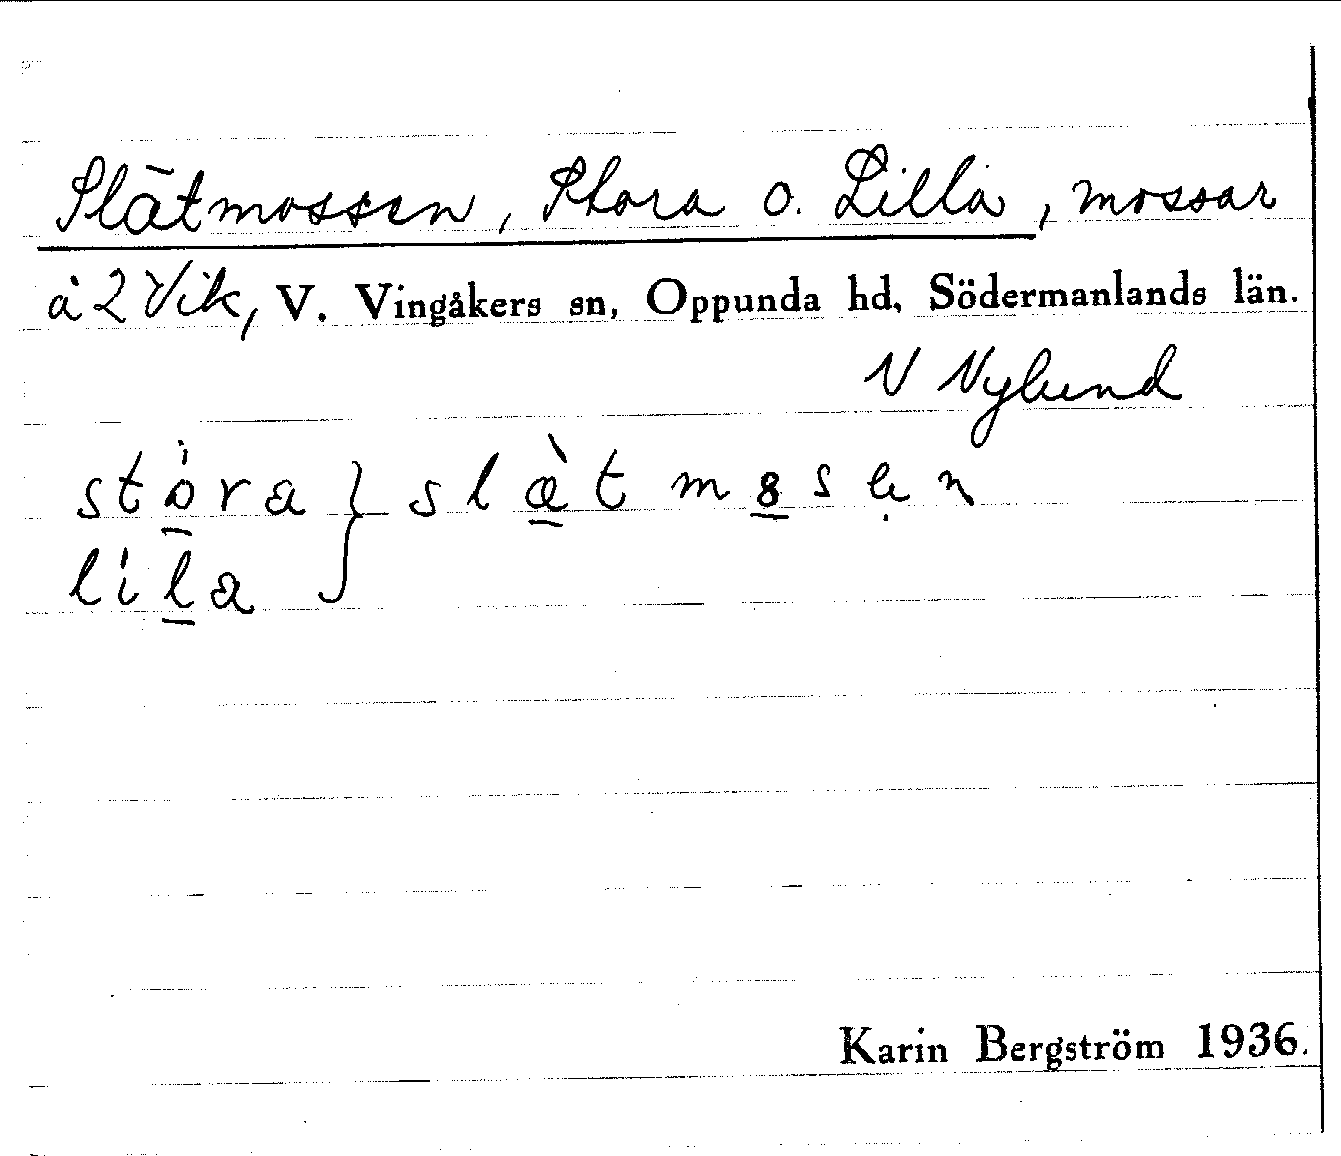 Slätmossen, Stora o. Lilla, mossar
å 2 Vik, V. Vingåkers sn, Oppunda hd, Södermanlands län.
N Nylund
stòra } slæ̀tmɞsen
lila
Karin Bergström 1936.